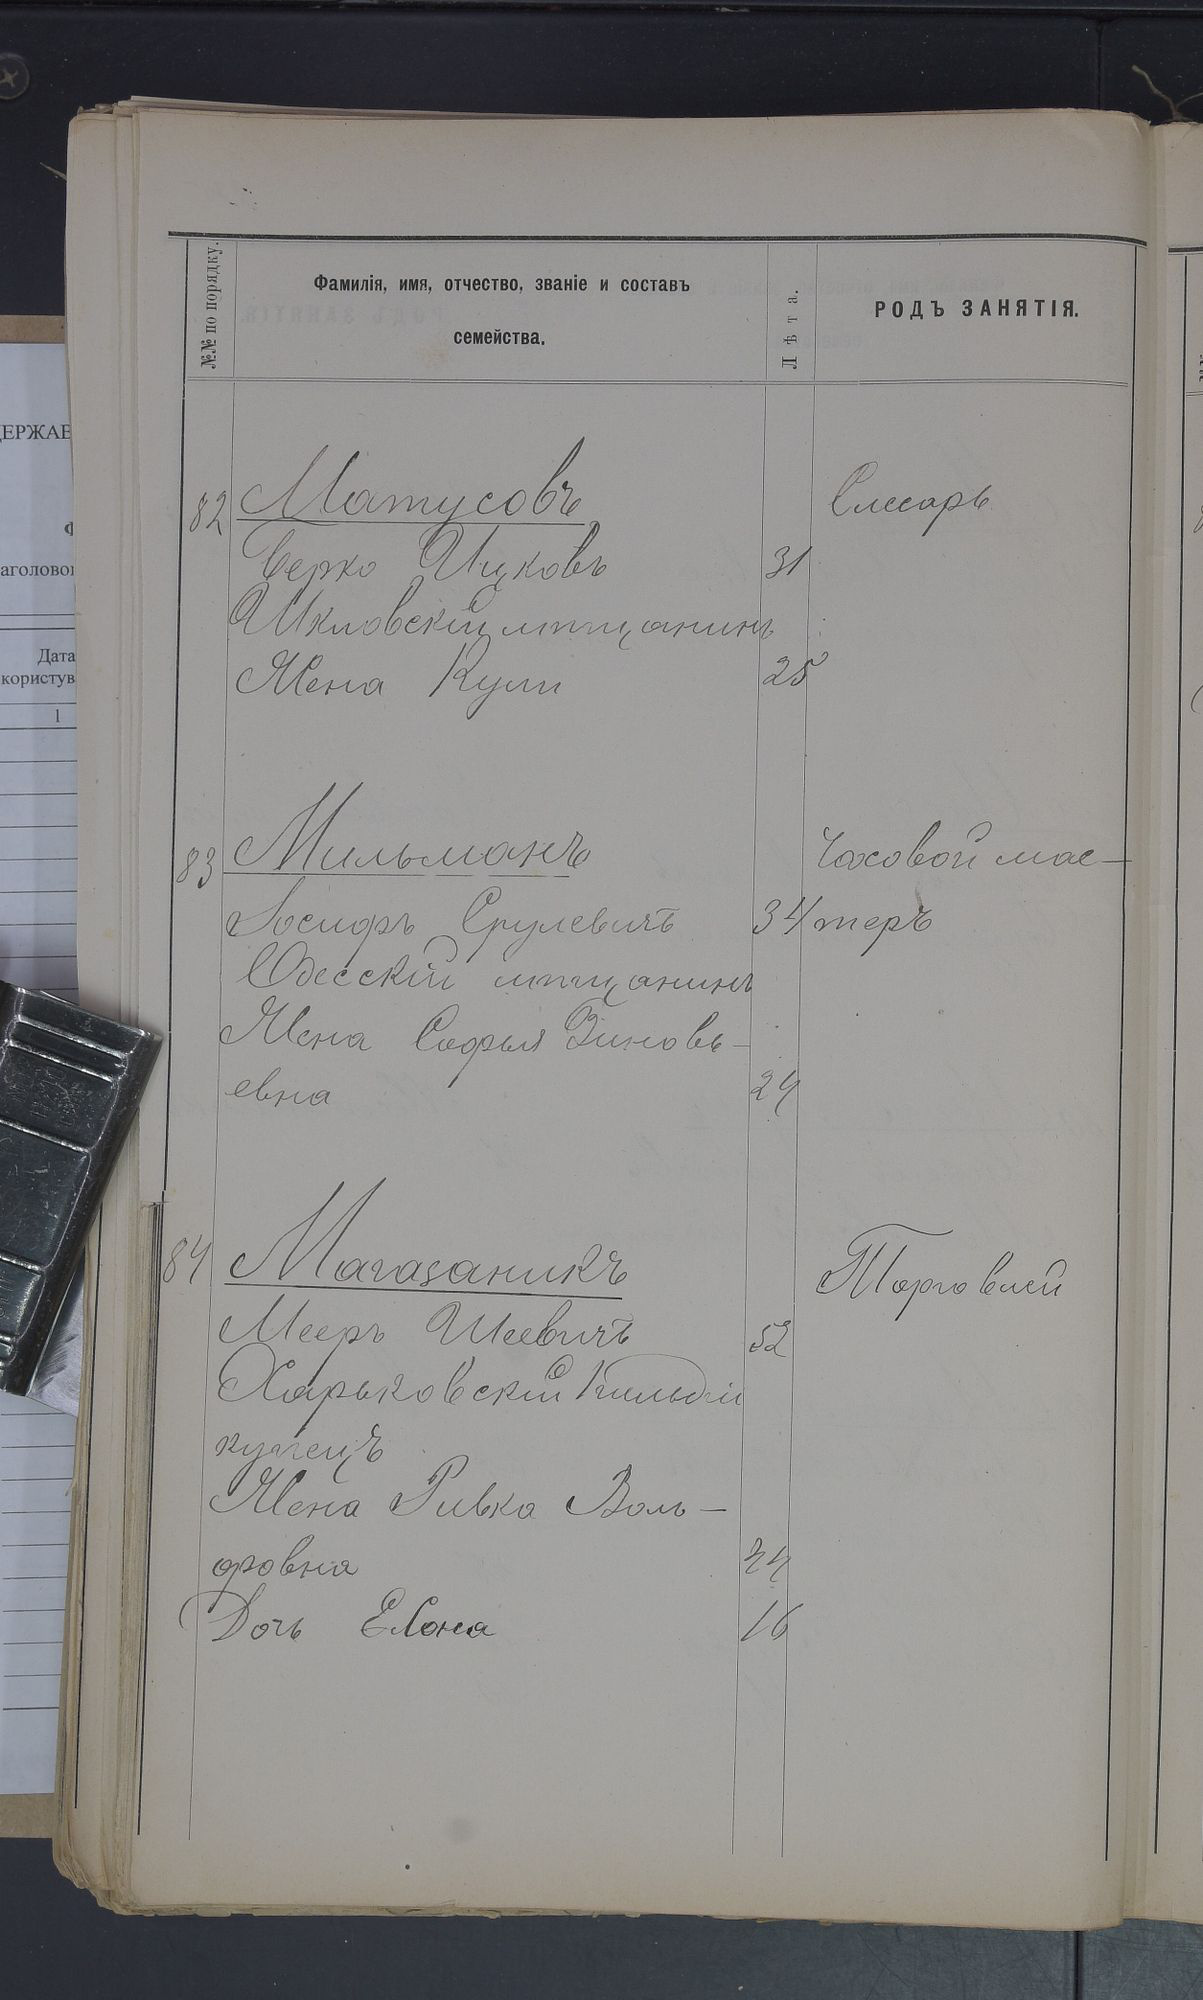 №№ по порядку.
Фамилія, имя, отчество, званіе и составъ
семейства.
Лѣта.
РОДЪ ЗАНЯТІЯ.
82 Матусовъ Слесарь
Берко Ицковъ 31
Шкловскій мѣщанинъ
Жена Кули 25
83 Мильманъ Часовой мас-
Іосифъ Срулевичъ 34 теръ
Одесскій мѣщанинъ
Жена Софья Зиновь-
евна 24
84 Магазаникъ Торговлей
Мееръ Шеевичъ 52
Харьковскій 1 гильдіи
купецъ
Жена Ривка Воль-
фовна 44
Дочь Елена 16
ДЕРЖАВ
аголовок
Дата
користув
1